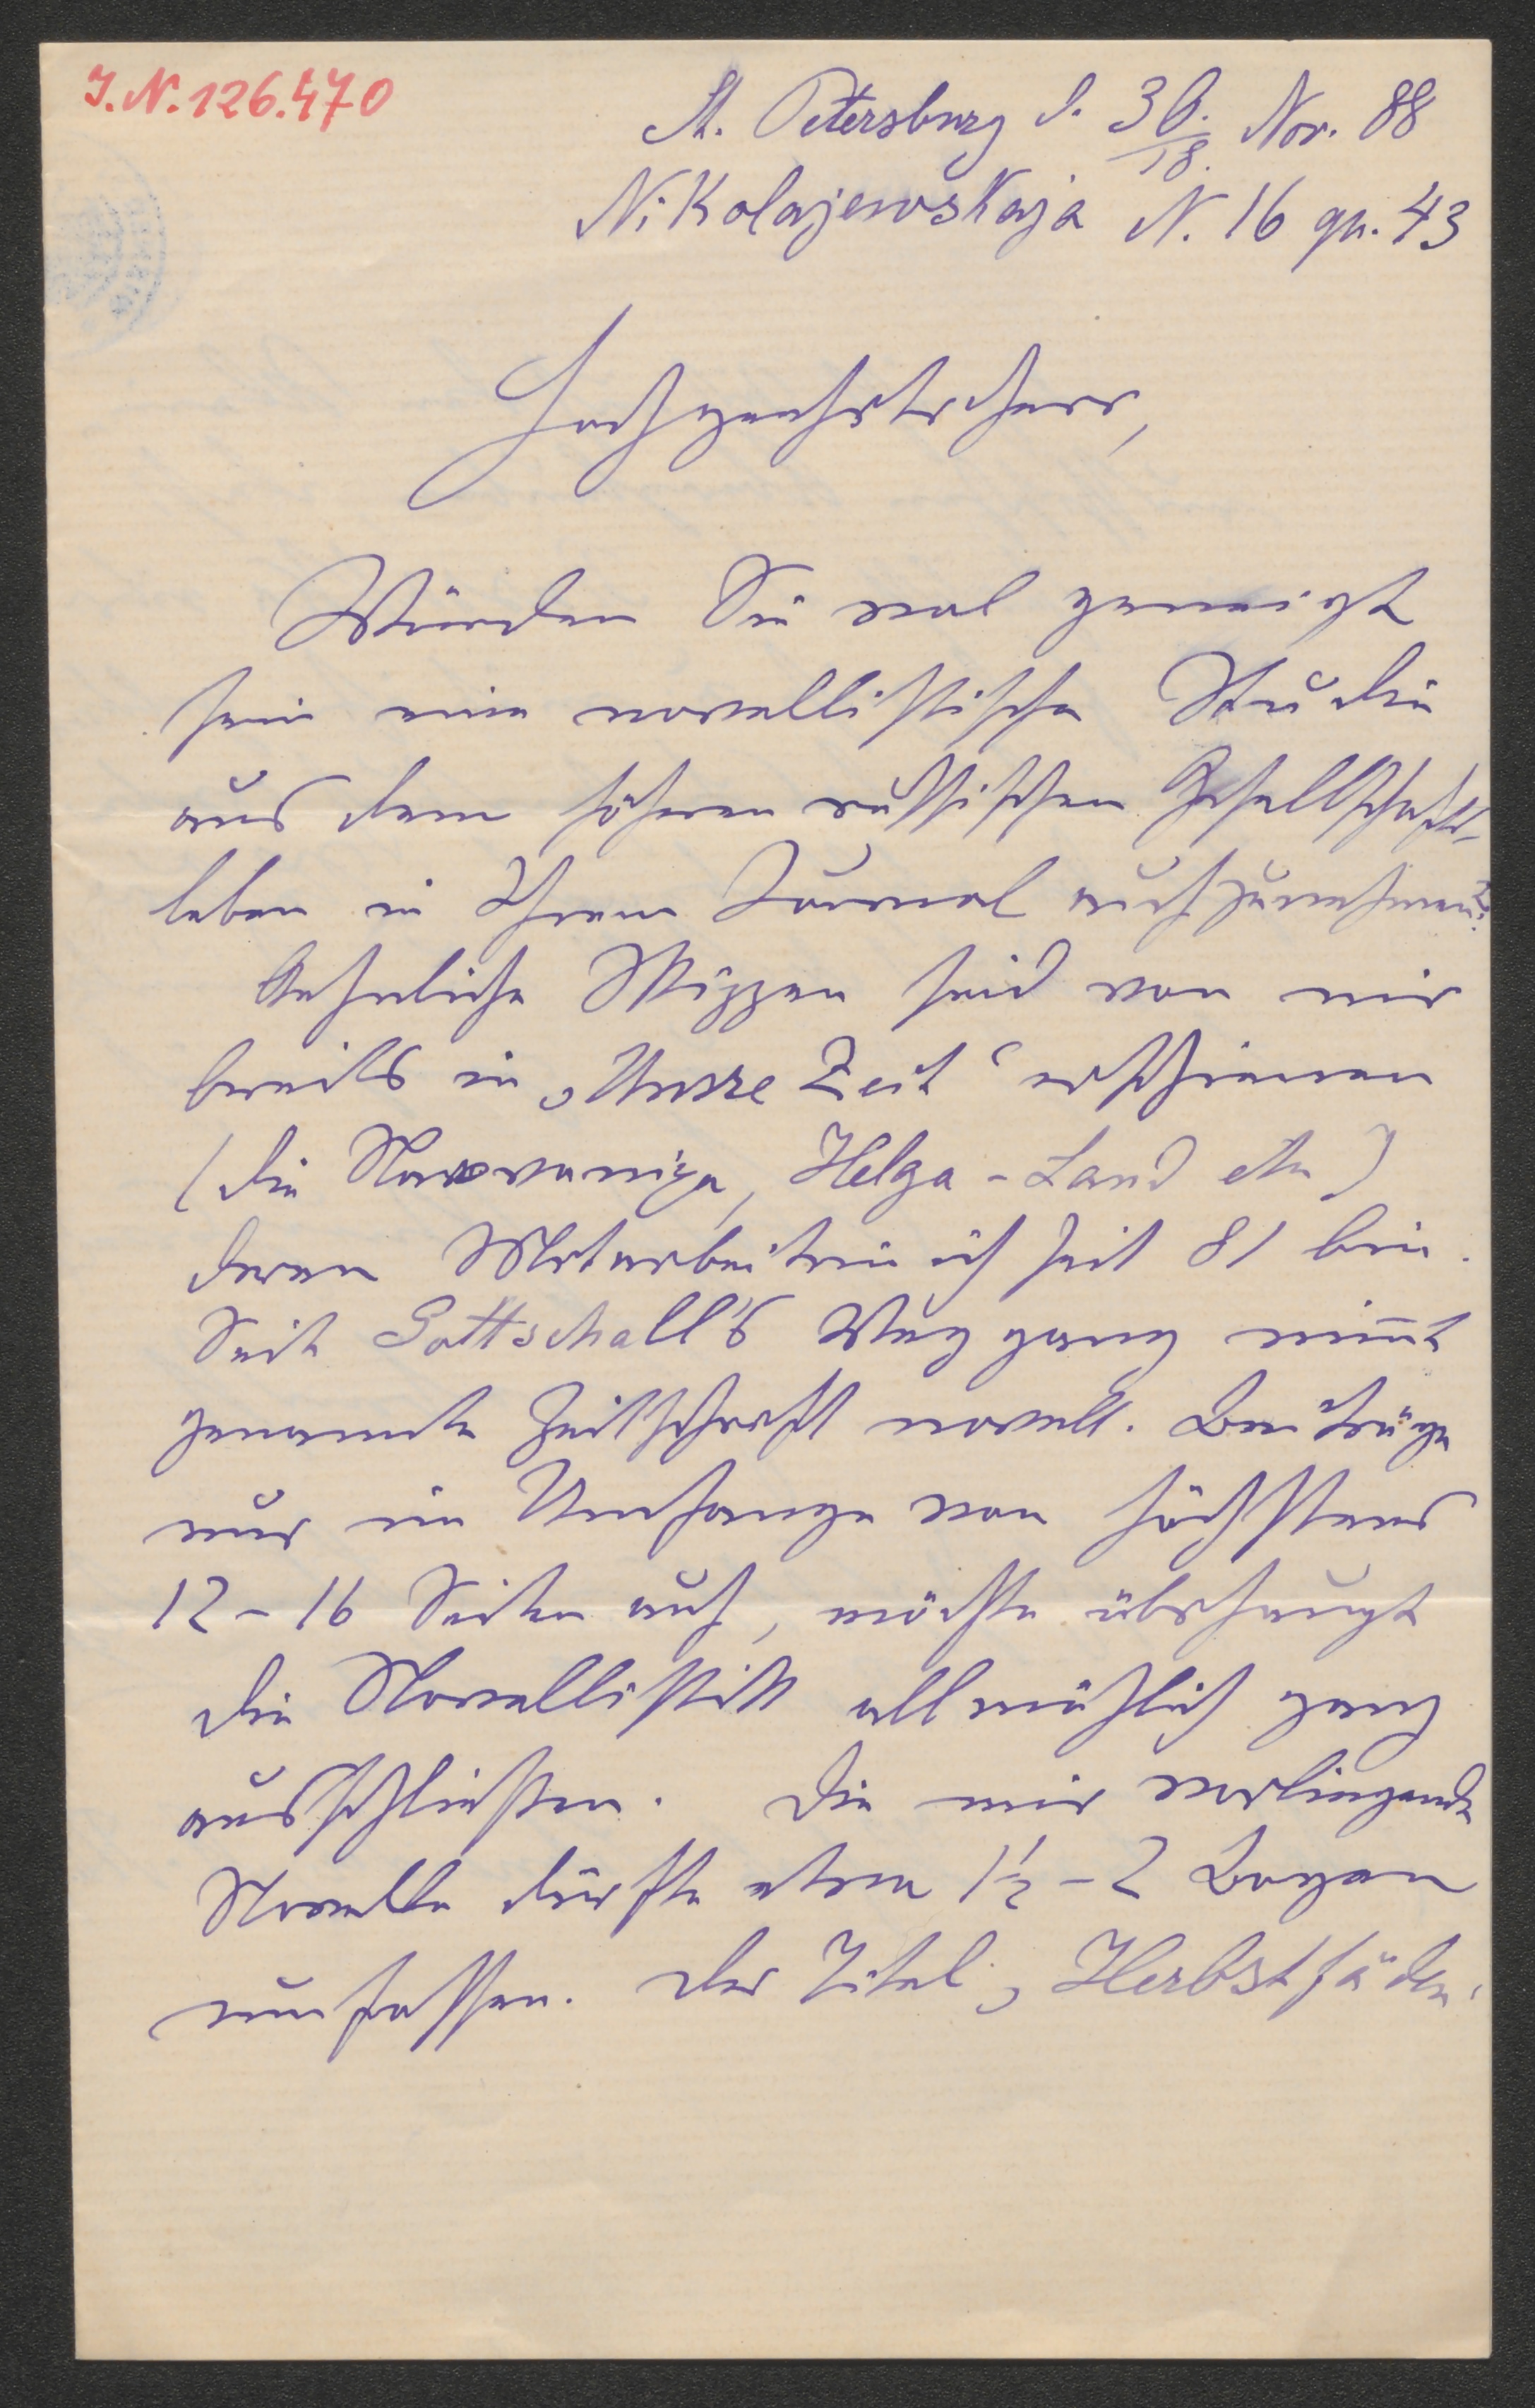 J.N. 126.470
St. Petersburg d. 30./18. Nov. 88
Nikolajewskaja N. 16 qu. 43
Hochgeehrter Herr,
Würden Sie wol geneigt
sein eine novellistische Studie
aus dem höheren russischen Gesellschafts-
leben in Ihrem Journal aufzunehmen?
Aehnliche Skizzen sind von mir
bereits in „Unsre Zeit“ erschienen
(die Helga-Land etc)
deren Mitarbeiterin ich seit 81 bin.
Seit Gottschall's Weggang nim̄t
genannte Zeitschrift novell. Beiträge
nur im Umfange von höchstens
12-16 Seiten auf, möchte überhaupt
die Novellistik allmählich ganz
ausschließen. Die mir vorliegende
Novelle dürfte etwa 1½-2 Bogen
umfassen. Der Titel „Herbstfäden“